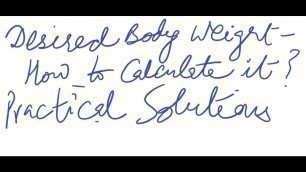 Desired Body Weight -
How to Calculate it?
Practical Solutions